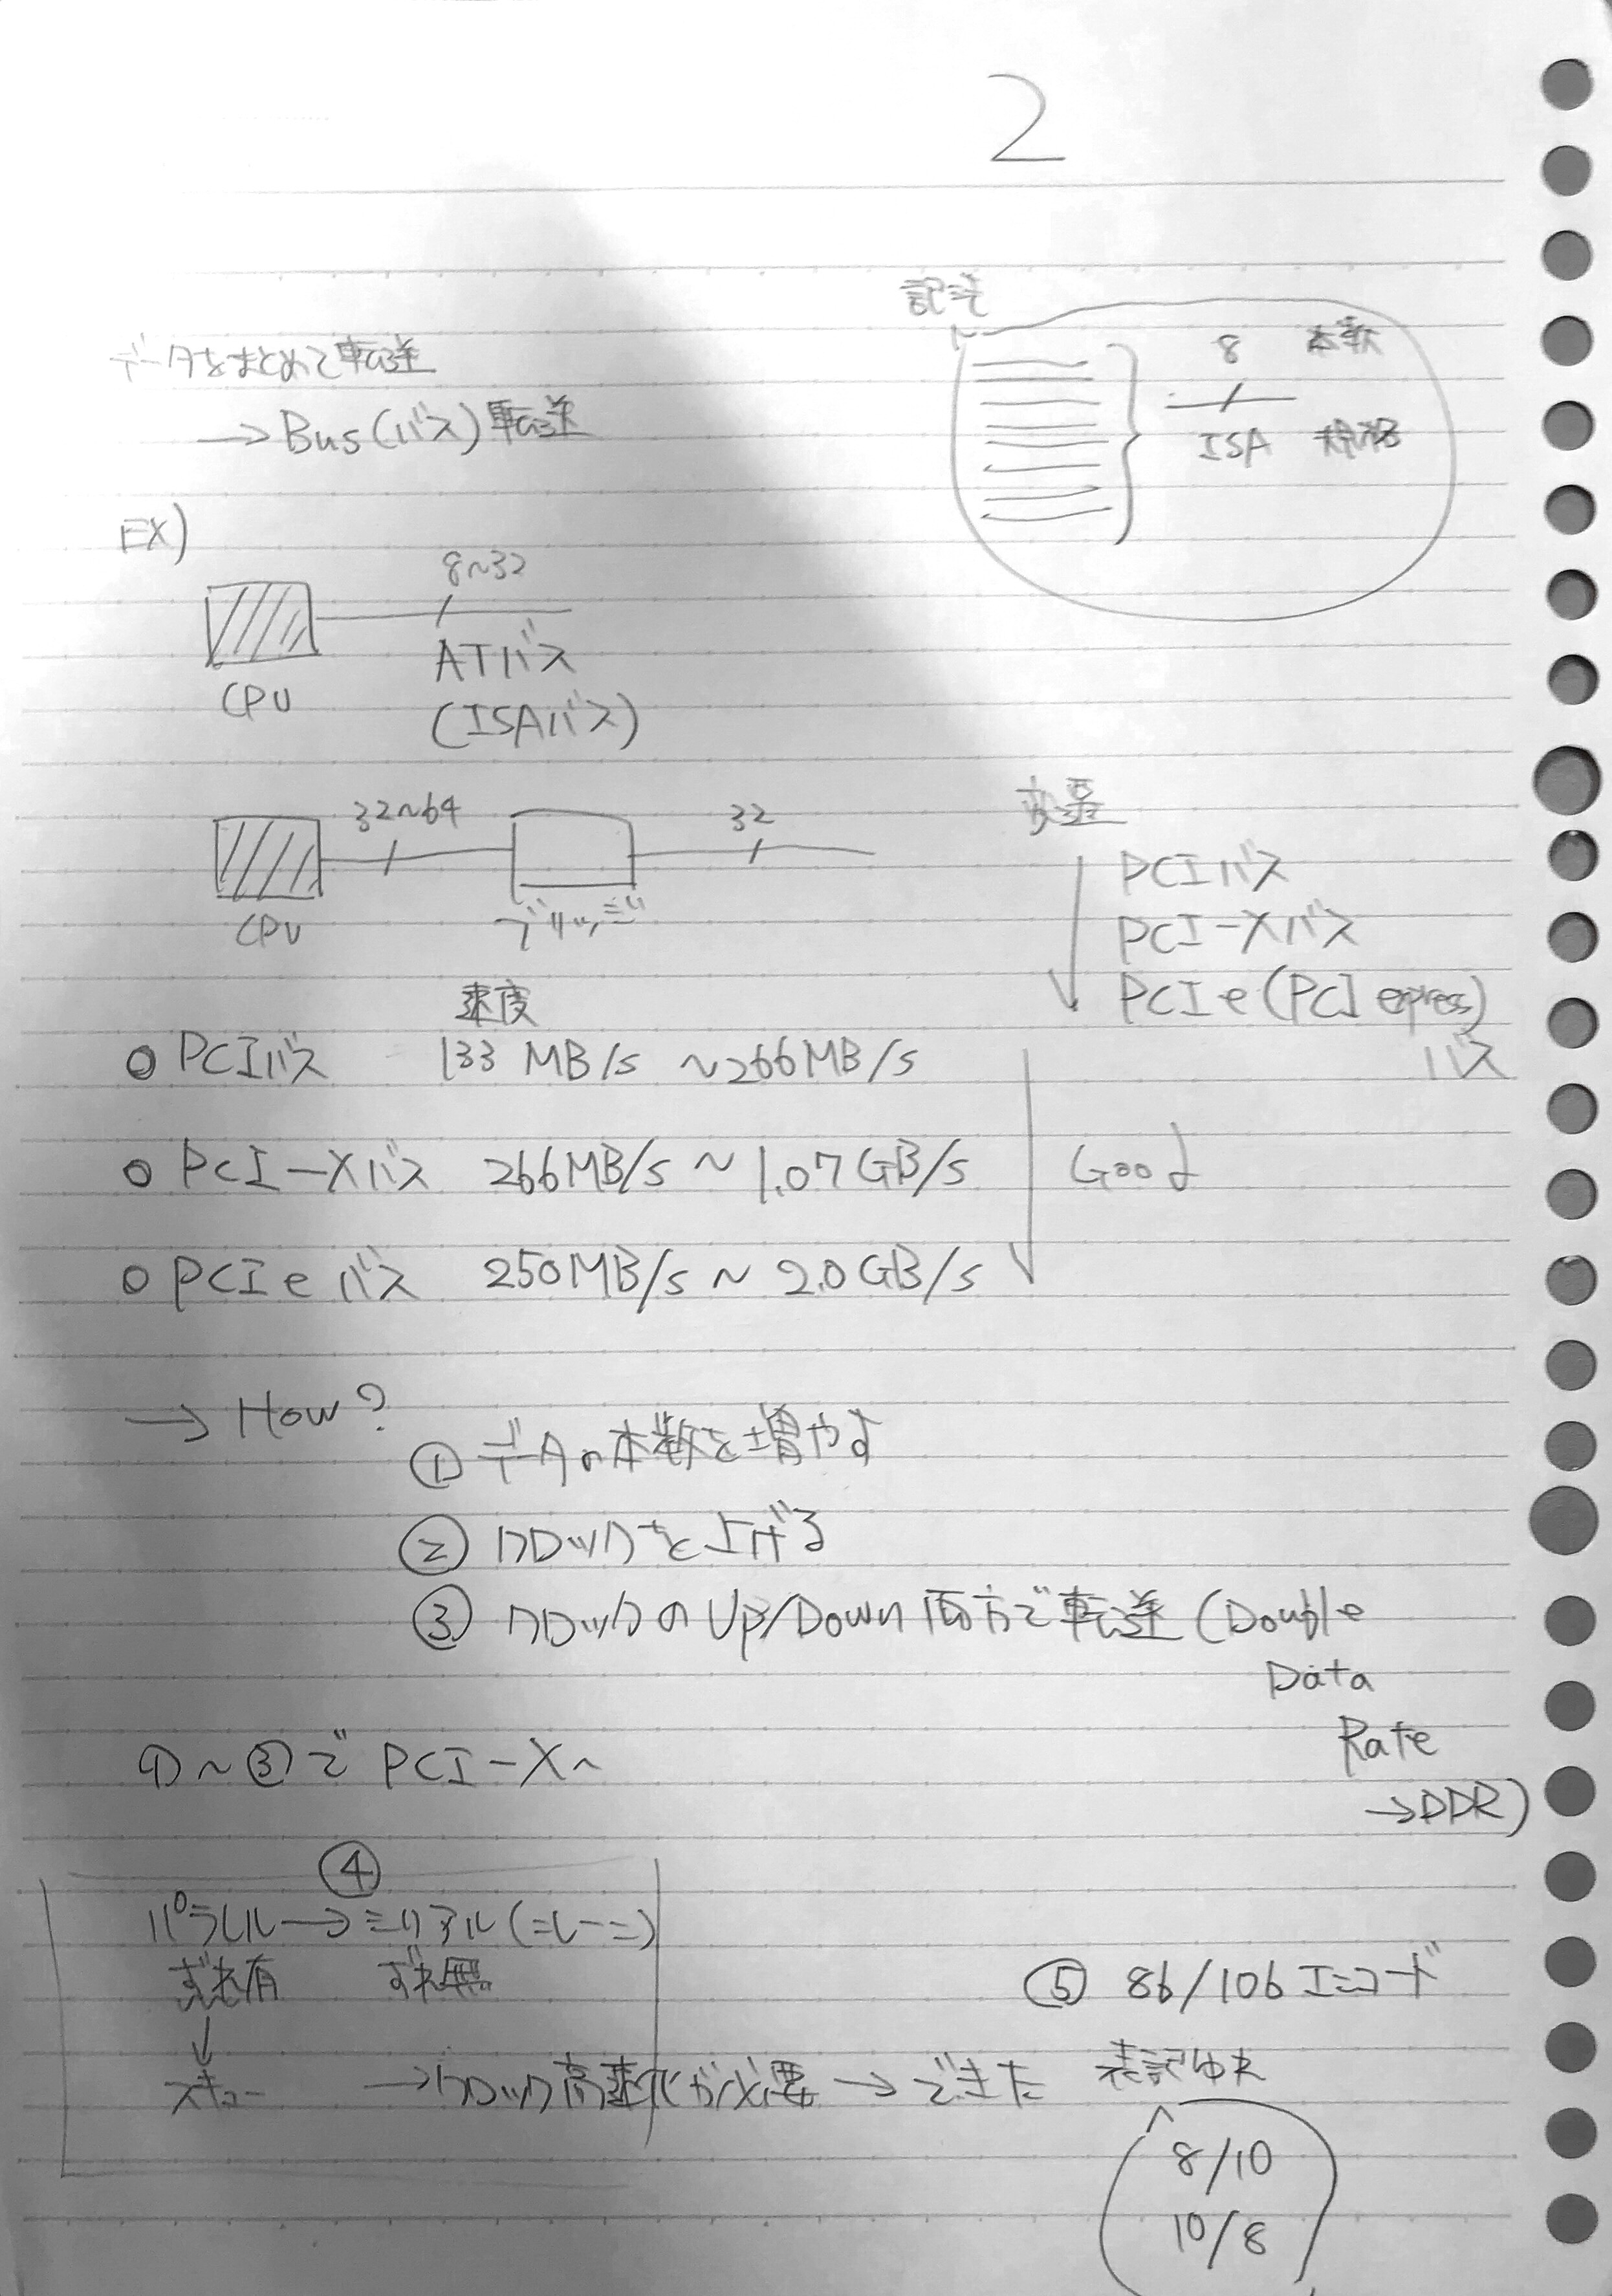 2
データをまとめて転送
→Bus(バス)転送
8 本
ISA
EX)
8~32
ATバス
(ISAバス)
CPU
32~64
32
CPU
ブリッジ
PCIバス
PCI-Xバス
PCIe(PCI express)
バス
速度
○ PCIバス 133 MB/s ~266MB/s
○ PCI-Xバス 266MB/s ~ 1.07GB/s
Good
○ PCIe バス 250MB/s ~ 2.0GB/s
→ How?
① データの本数を増やす
② クロックを上げる
③ クロックのUp/Down両方で転送 (Double
Data
Rate
→DDR)
①~③で PCI-Xへ
④
パラレル→シリアル(
ずれ有 ずれ無
↓
スキュー →クロック高速化が必要→できた
⑤ 8b/10b エンコード
8/10
10/8